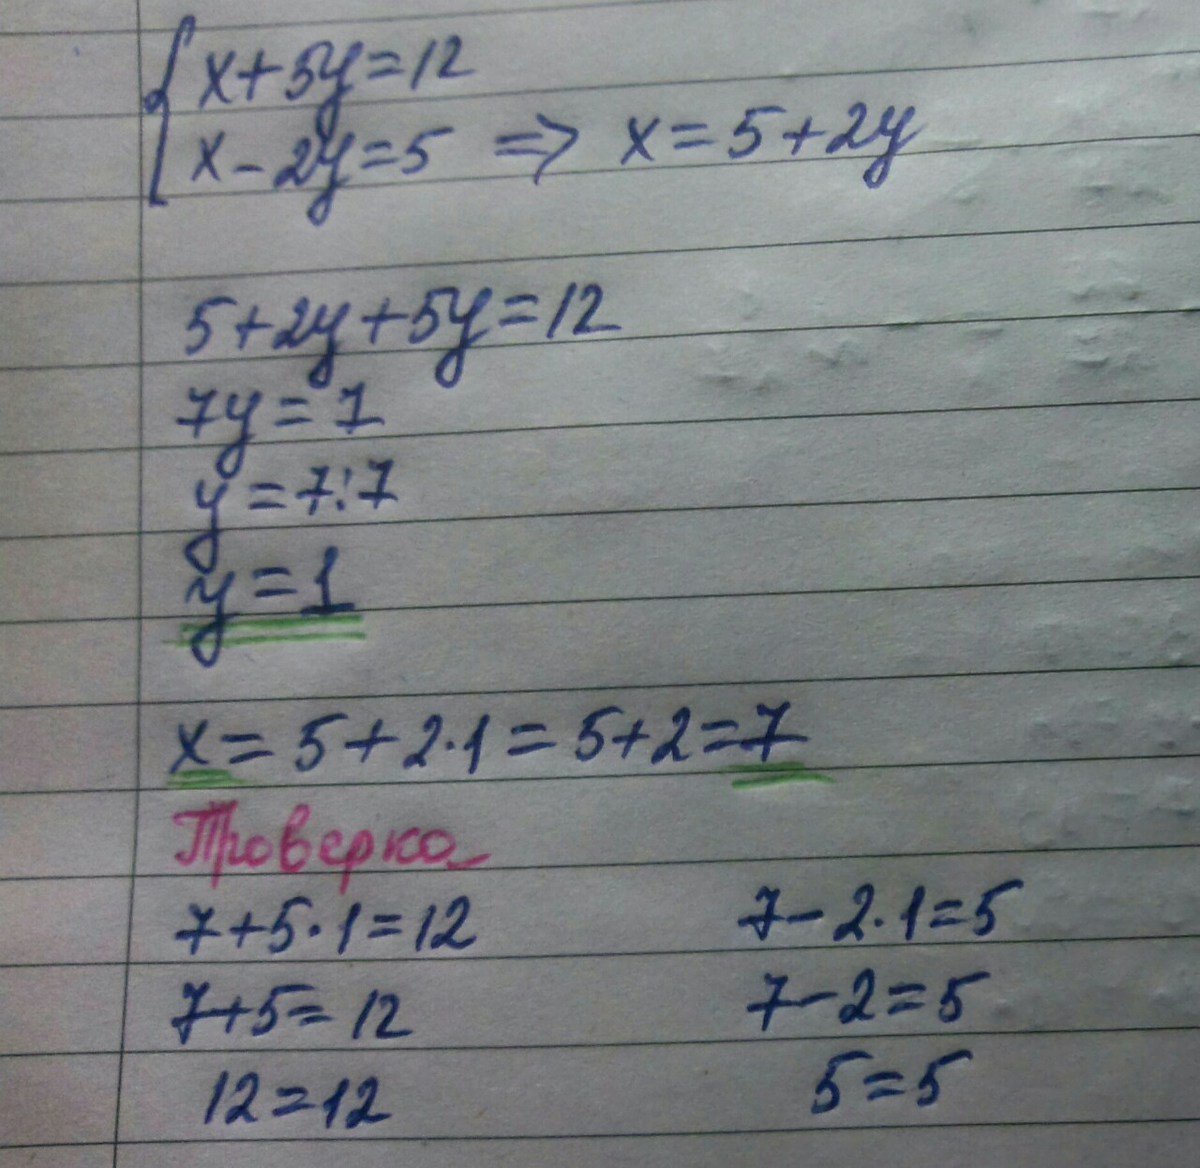 x+5y=12
x-2y=5 => x=5+2y
5+2y+5y=12
7y=7
y=7:7
y=1
x=5+2·1=5+2=7
Проверка
7+5·1=12 7-2·1=5
7+5=12 7-2=5
12=12 5=5